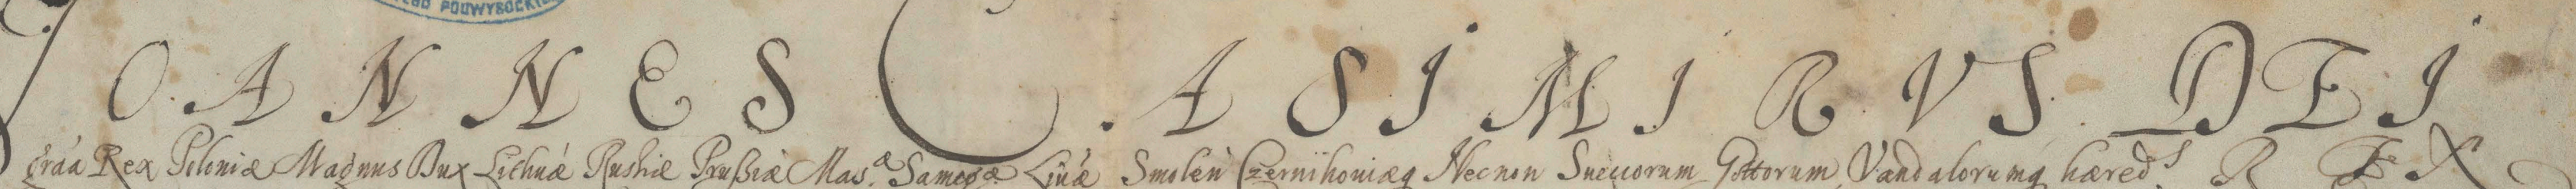 POUWYSOCKI
JOANNES CASIMIRVS DEI
gráa Rex Poloniæ Magnus Dux Lithuǽ Rushiæ Prußiæ Mas.æ Samogæ Liuǽ Smolen Czernihoniæq Necnon Sueuorum Gottorum Vandalorumq hæreds REX